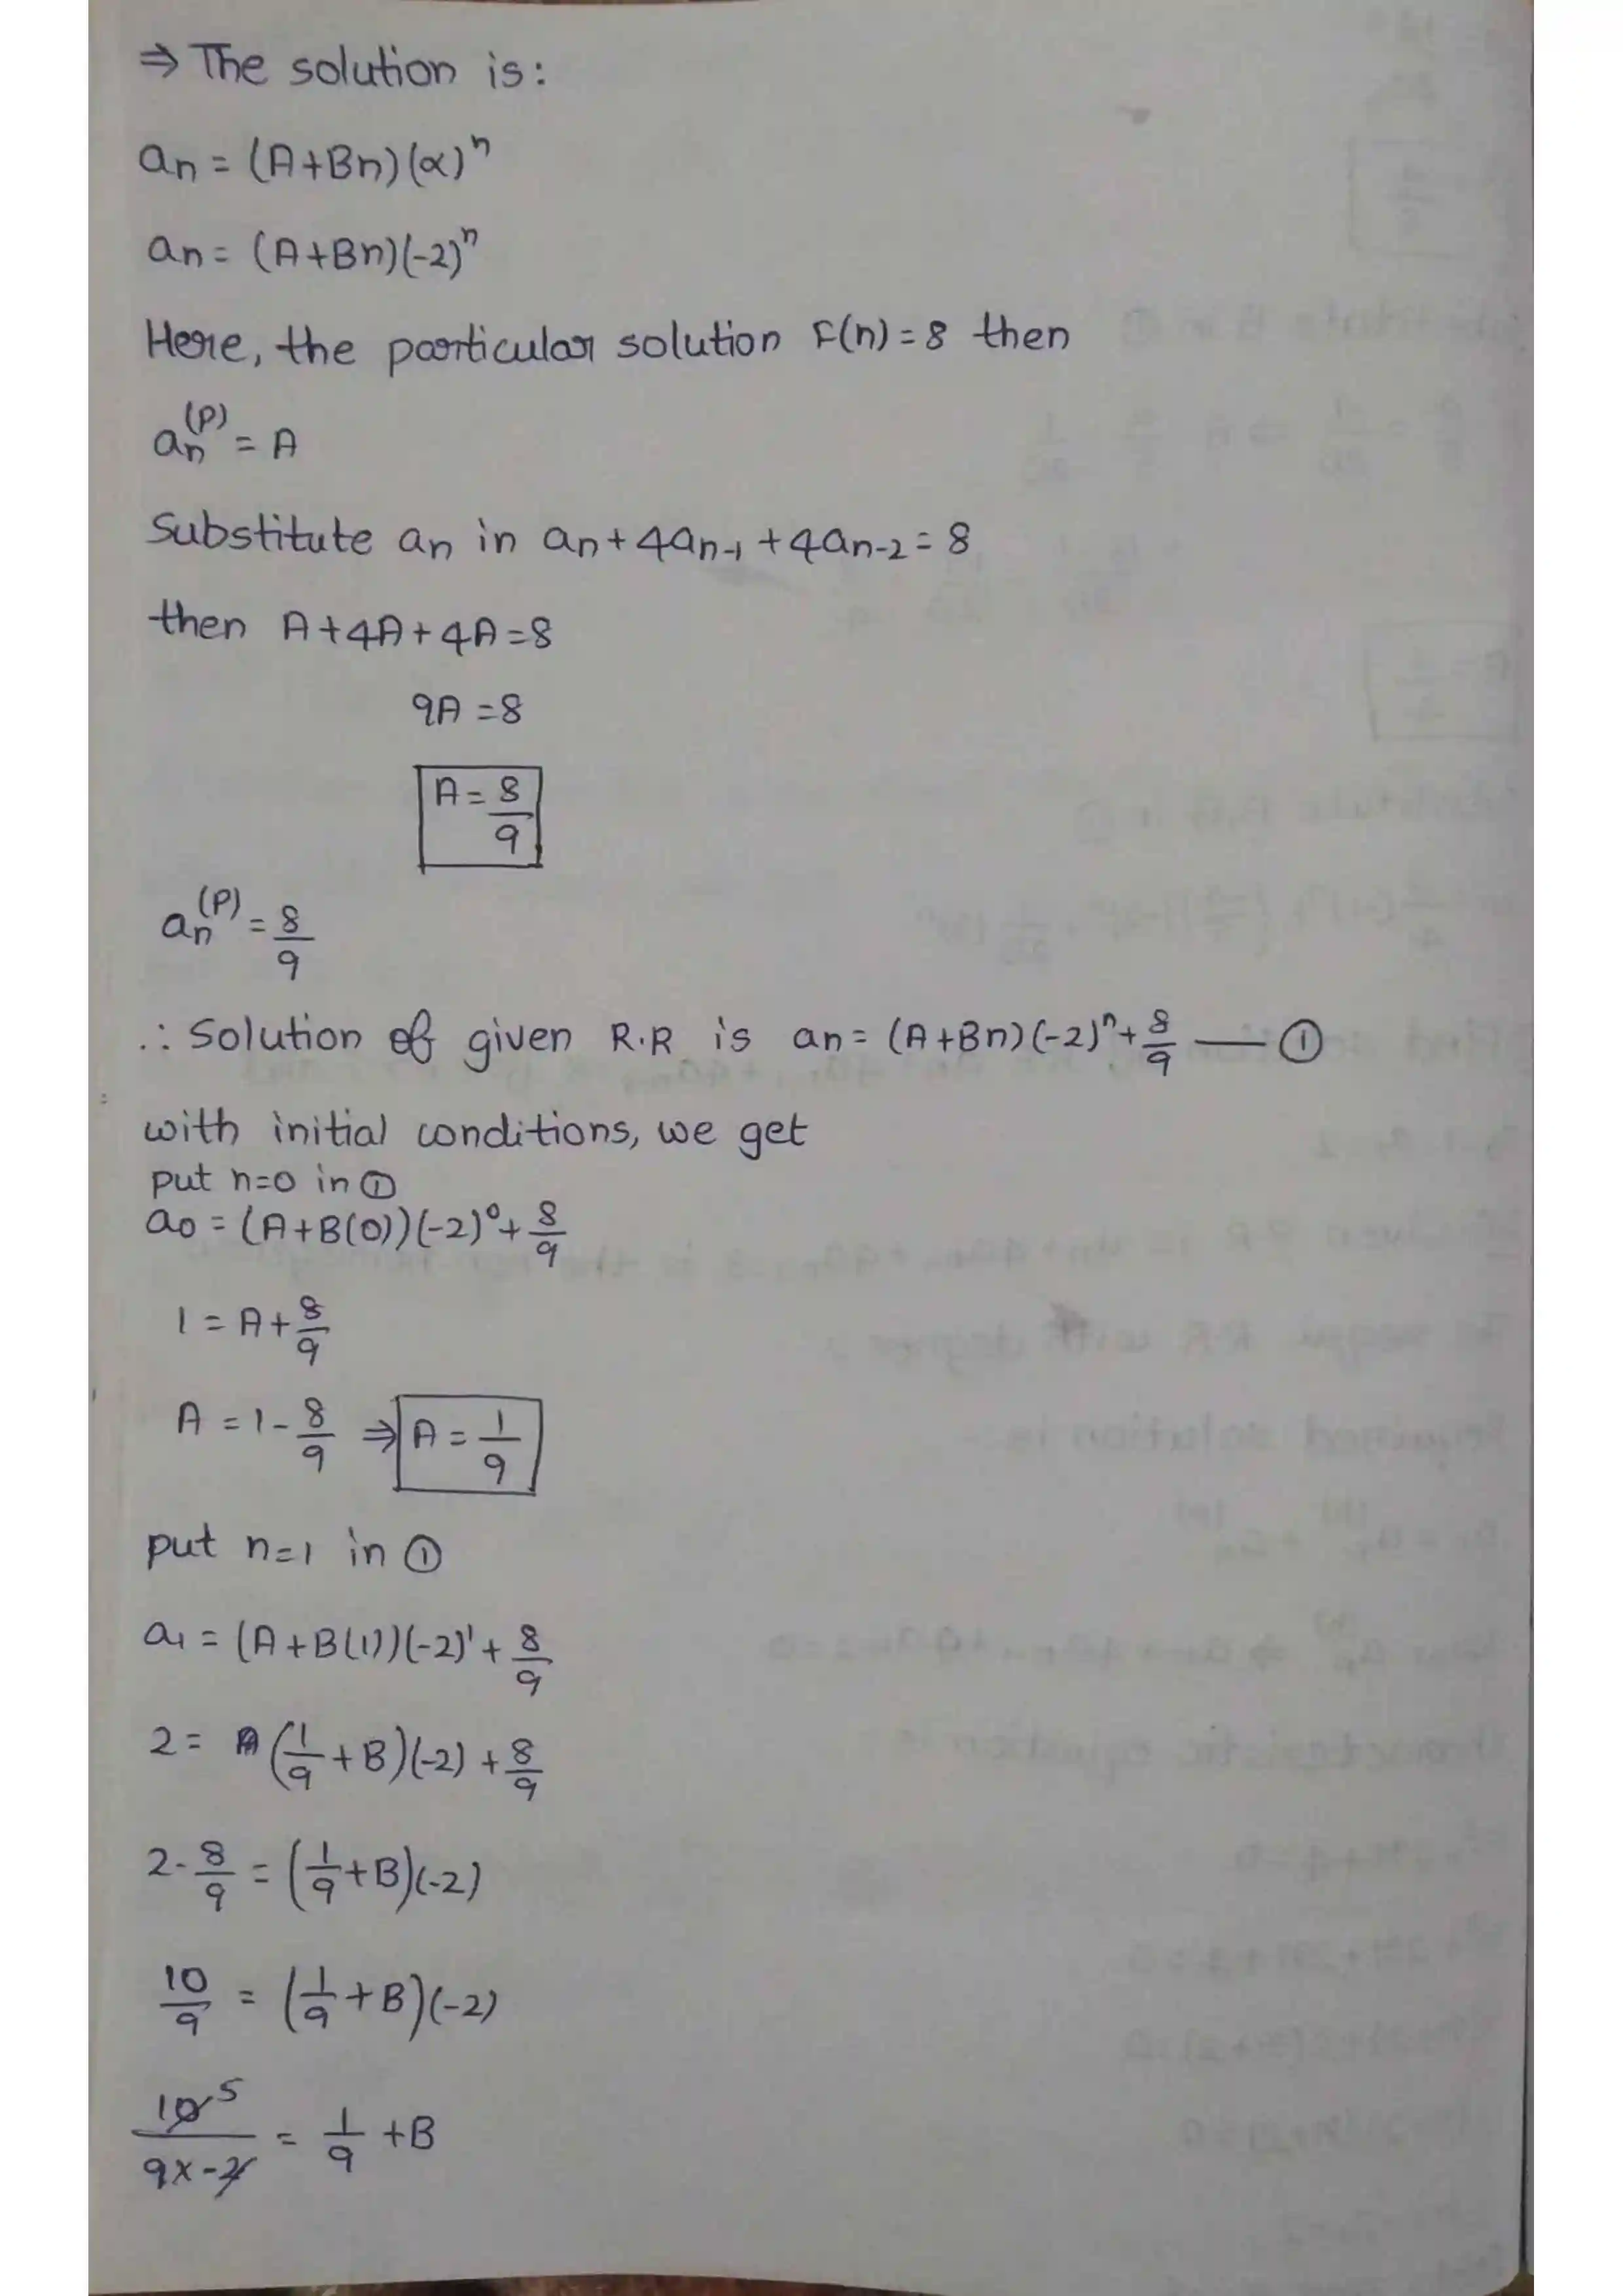 ⇒ The solution is:
an = (A+Bn)(α)ⁿ
an = (A+Bn)(-2)ⁿ
Here, the particular solution F(n)=8 then
an⁽ᴾ⁾ = A
Substitute an in an+4an-1+4an-2=8
then A+4A+4A=8
9A=8
A=8/9
an⁽ᴾ⁾ = 8/9
∴ Solution of given R.R is an=(A+Bn)(-2)ⁿ+8/9 — ①
with initial conditions, we get
put n=0 in ①
a0 = (A+B(0))(-2)⁰+8/9
1 = A+8/9
A = 1-8/9 ⇒ A = 1/9
put n=1 in ①
a1 = (A+B(1))(-2)¹+8/9
2 = (1/9+B)(-2)+8/9
2-8/9 = (1/9+B)(-2)
10/9 = (1/9+B)(-2)
10 5/9x-2 = 1/9+B